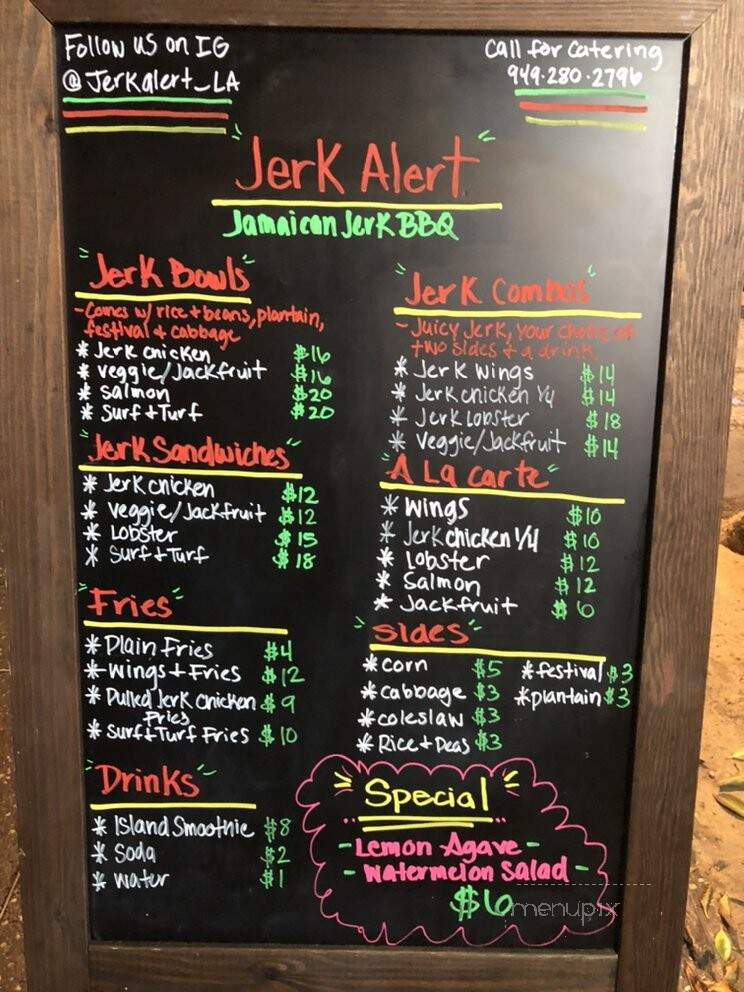 Follow us on IG
@Jerkalert_LA
Call for Catering
949·280·2796
Jerk Alert
Jamaican Jerk BBQ
Jerk Bowls
- Comes w/ rice + beans, plantain,
festival & cabbage
* Jerk chicken $16
* Veggie/Jackfruit $16
* Salmon $20
* Surf + Turf $20
Jerk Sandwiches
* Jerk chicken $12
* Veggie/Jackfruit $12
* Lobster $15
* Surf + Turf $18
Fries
* Plain Fries $4
* Wings + Fries $12
* Pulled Jerk Chicken $9
Fries
* Surf + Turf Fries $10
Drinks
* Island Smoothie $8
* Soda $2
* Water $1
Jerk Combos
- Juicy Jerk, your choice of
two sides + a drink
* Jerk Wings $14
* Jerk chicken 1/4 $14
* Jerk lobster $18
* Veggie/Jackfruit $14
A La carte
* Wings $10
* Jerk chicken 1/4 $10
* Lobster $12
* Salmon $12
* Jackfruit $6
Sides
* corn $5 * festival $3
* cabbage $3 * plantain $3
* coleslaw $3
* Rice + Peas $3
Special
- Lemon Agave -
- Watermelon Salad -
$6
menupix